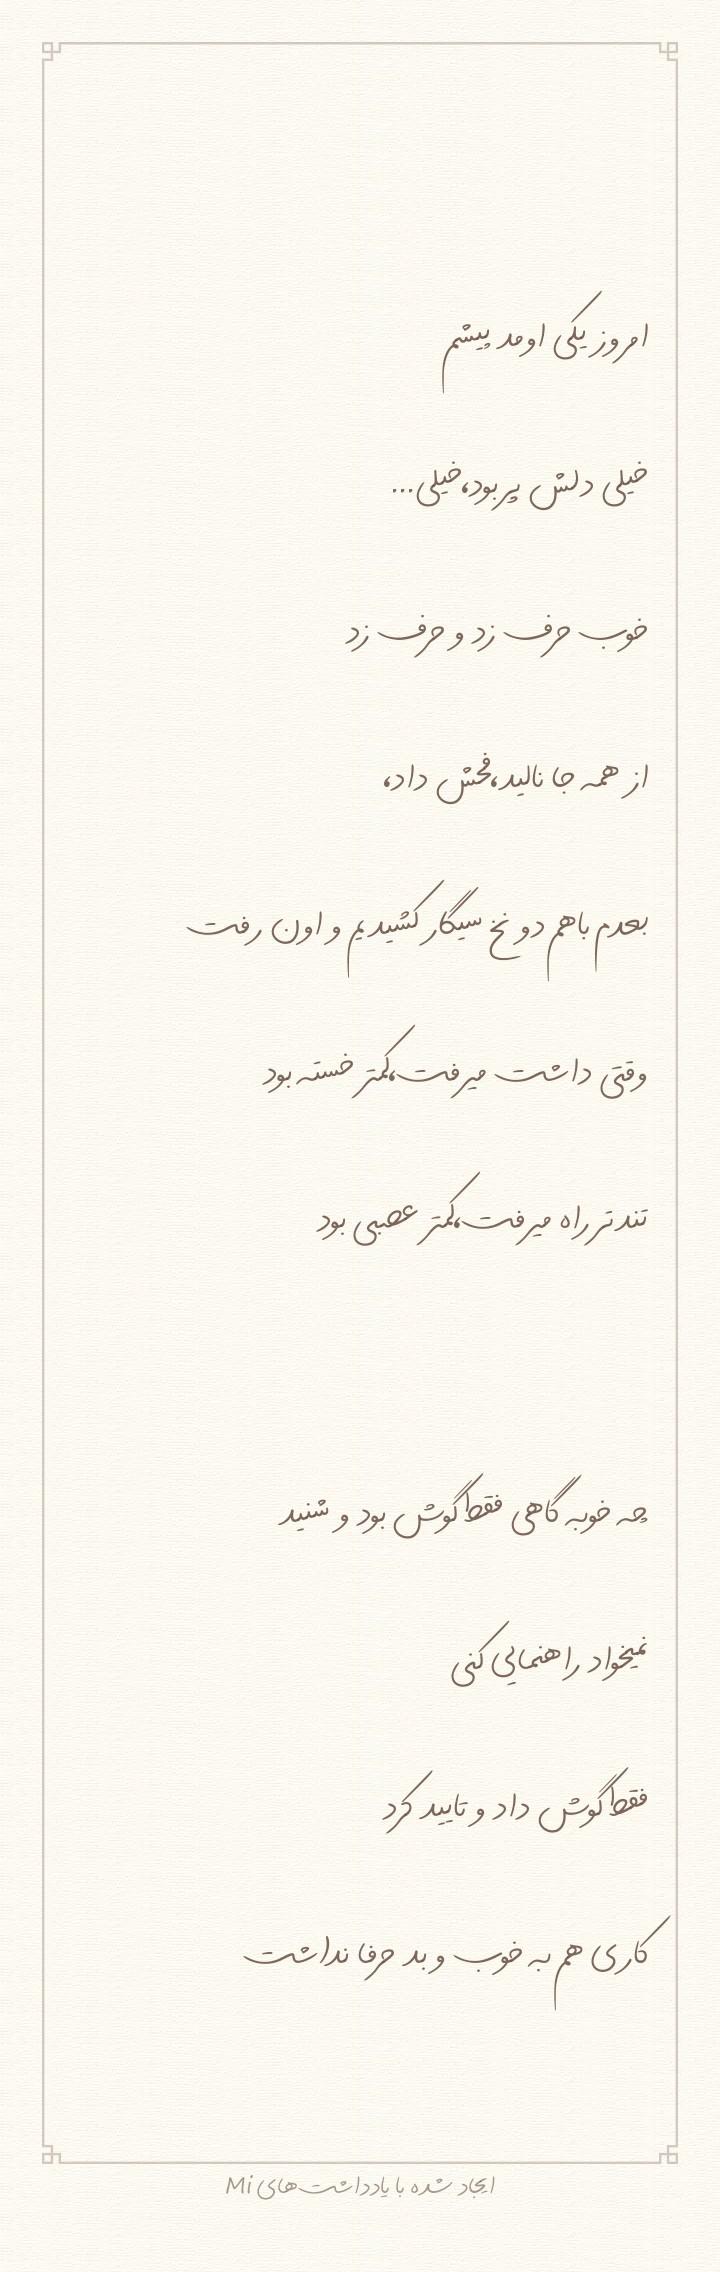 امروز یکی اومد پیشم
خیلی دلش پر بود،خیلی...
خوب حرف زد و حرف زد
از همه جا نالید،فحش داد،
بعدم باهم دو نخ سیگار کشیدیم و اون رفت
وقتی داشت میرفت،کمتر خسته بود
تندتر راه میرفت،کمتر عصبی بود
چه خوبه گاهی فقط گوش بود و شنید
نمیخواد راهنمایی کنی
فقط گوش داد و تایید کرد
کاری هم به خوب و بد حرفا نداشت
ایجاد شده با یادداشت‌های Mi